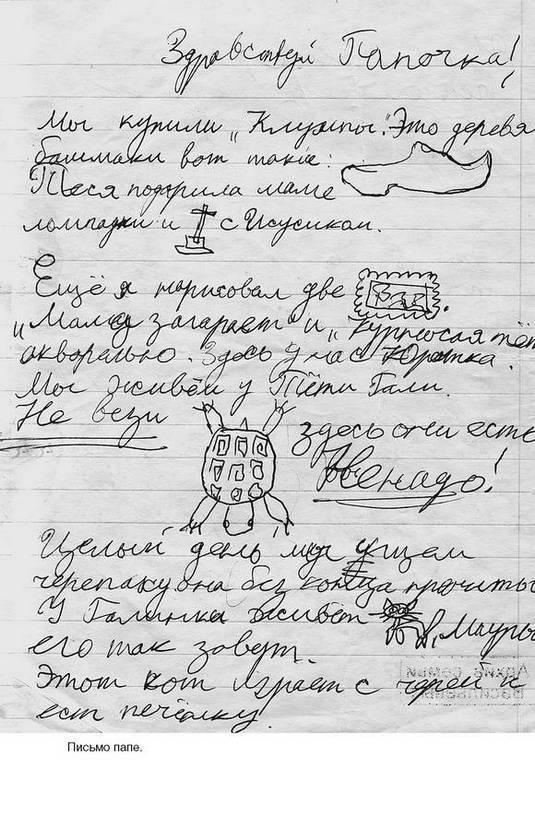 Здравствуй Папочка!
Мы купили „Клумпы". Это деревя
башмаки вот такие:
Песя подарила маме
лампадки и с Исусиком.
Ещё я нарисовал две
„Мама загарает" и „курносая тёт
акворелью. Здесь у нас Юратка.
Мы живём у Тёти Гали.
Не вези
здесь они есть
Ненадо!
Целый день мы ищем
черепаху она без конца прячиты
У Галинки живет „Маури
его так зовут.
Этот кот играет с черепи
ест печёнку.
Архив семьи
Васильевы
Письмо папе.